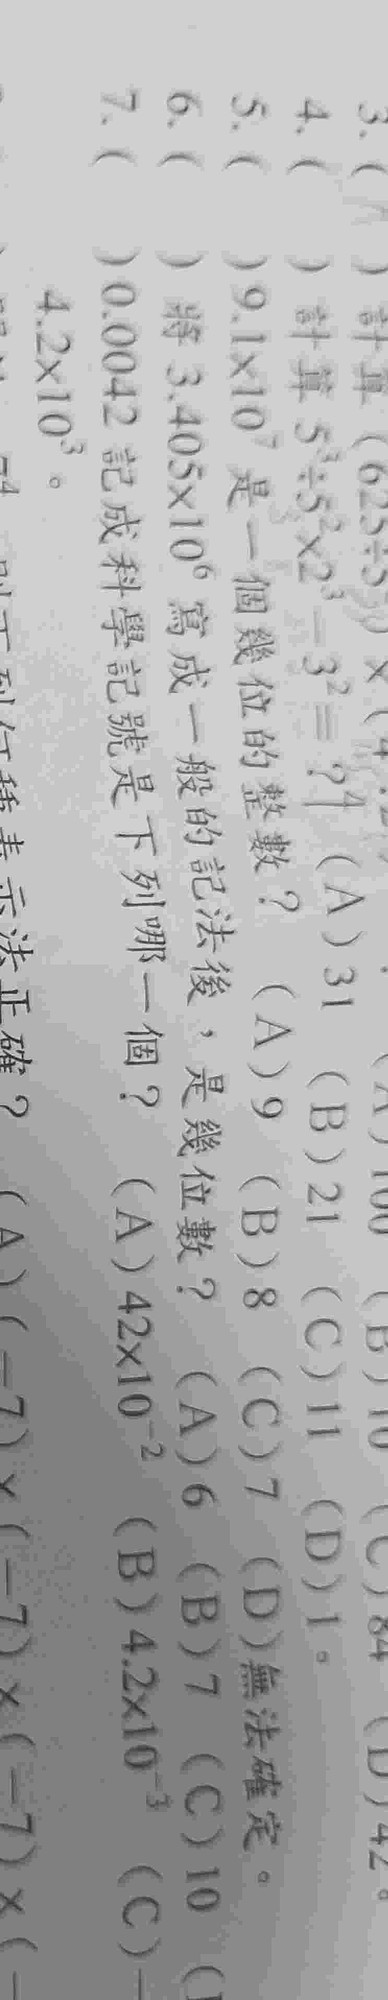 3. ( ) 計算 (625÷5
(B)10 (C)84 (D)42。
4. ( ) 計算 5³÷5²×2³－3²＝? (A)31 (B)21 (C)11 (D)1。
5. ( )9.1×10⁷ 是一個幾位的整數? (A)9 (B)8 (C)7 (D)無法確定。
6. ( ) 將 3.405×10⁶ 寫成一般的記法後，是幾位數? (A)6 (B)7 (C)10
7. ( )0.0042 記成科學記號是下列哪一個? (A)42×10⁻² (B)4.2×10⁻³ (C)
4.2×10³。
表示法正確? (A)(－7)×(－7)×(－7)×(－